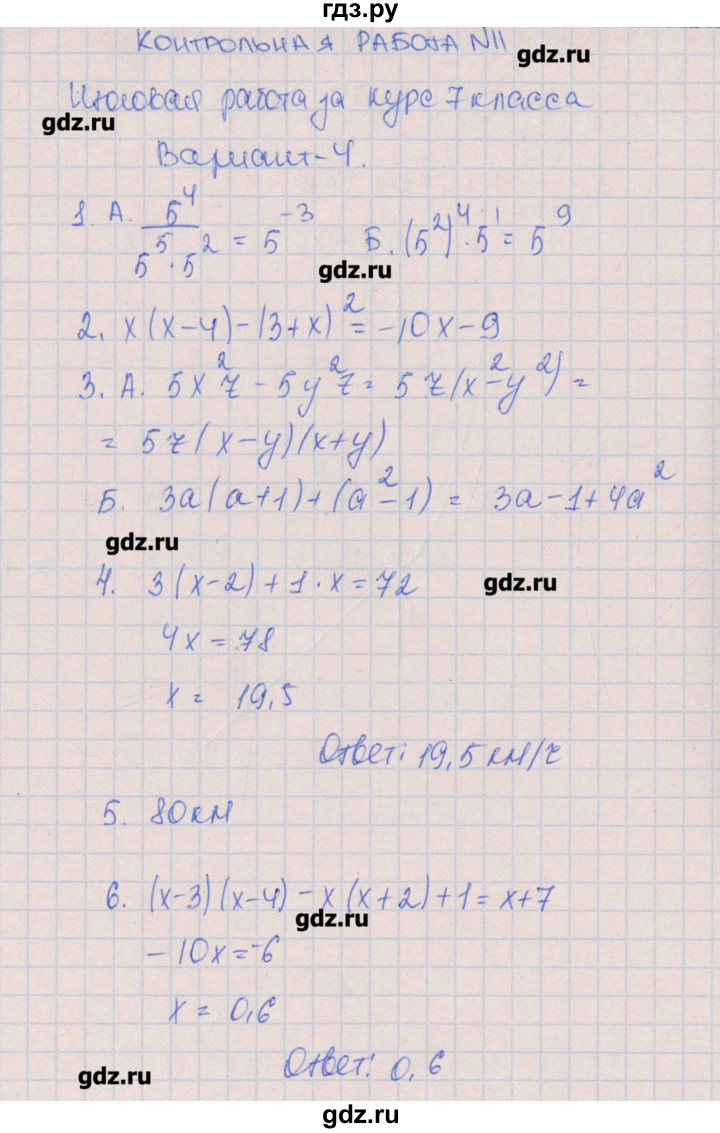 гдз.ру
КОНТРОЛЬНАЯ РАБОТА N11
gdz.ru
Итоговая работа за курс 7 класса
gdz.ru
Вариант-4.
1. А. 5⁴/(5⁵·5²) = 5⁻³ Б. (5²)⁴·5¹ = 5⁹
gdz.ru
2. x(x-4)-(3+x)² = -10x-9
3. А. 5x²z - 5y²z = 5z(x²-y²) =
= 5z(x-y)(x+y)
Б. 3a(a+1)+(a²-1) = 3a-1+4a²
gdz.ru
4. 3(x-2)+1·x=72 gdz.ru
4x=78
x = 19,5
Ответ: 19,5 км/ч
5. 80км
6. (x-3)(x-4)-x(x+2)+1=x+7
gdz.ru
-10x=-6
x = 0,6
Ответ: 0,6
gdz.ru
гдз.ру